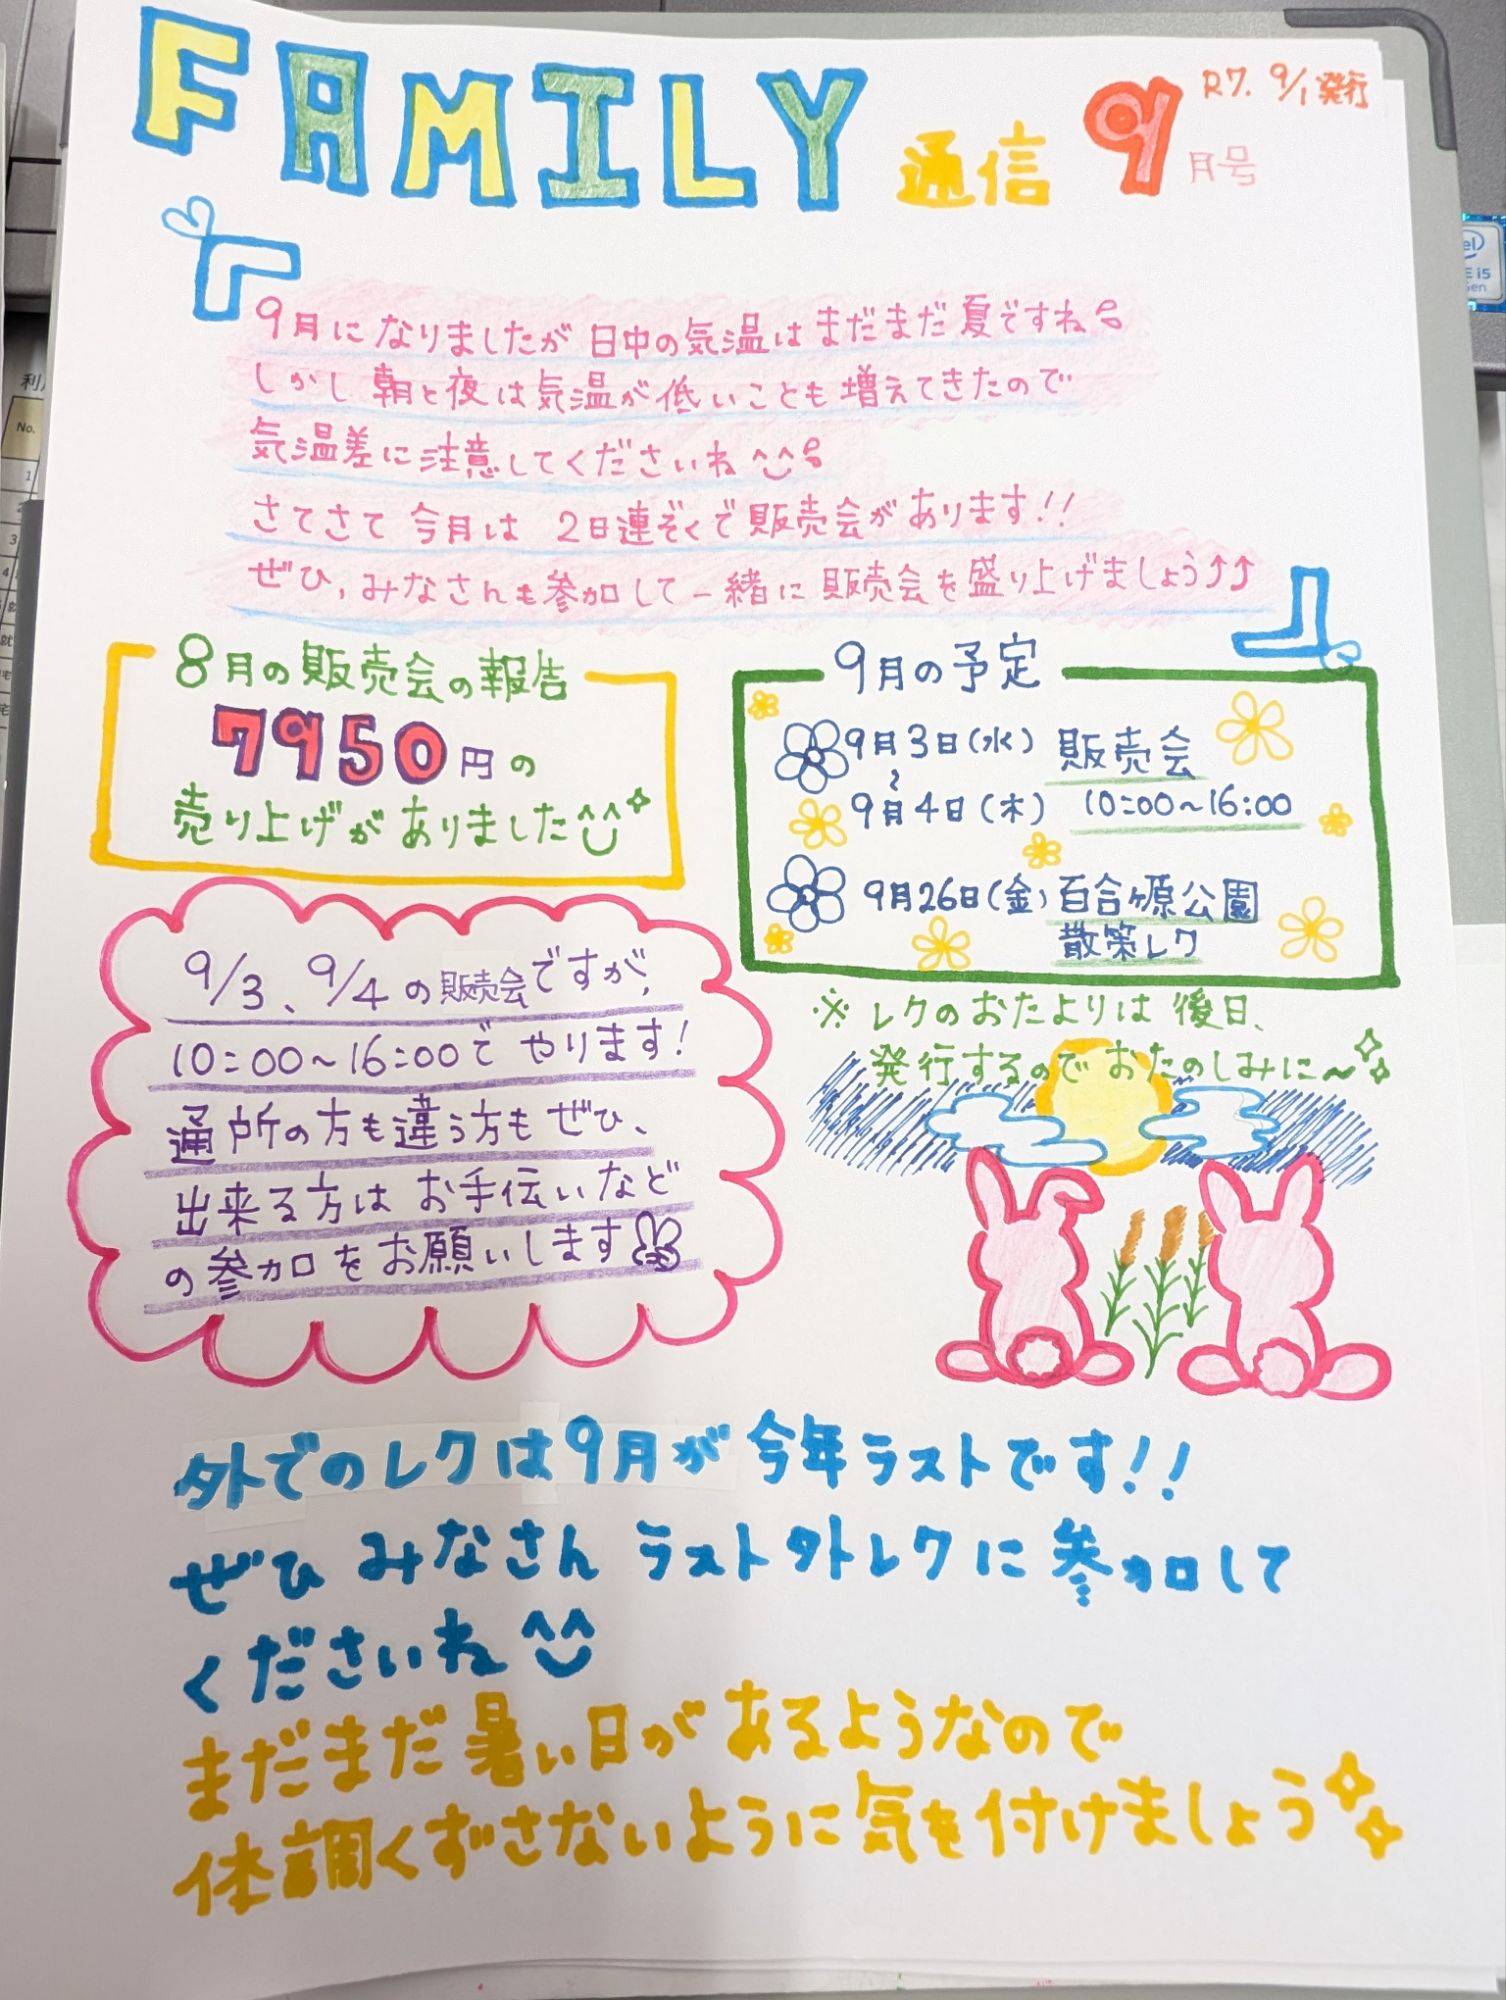 FAMILY 通信 9月号
R7. 9/1発行
9月になりましたが 日中の気温は まだまだ 夏ですね
しかし 朝と夜は 気温が 低いことも 増えてきたので
気温差に注意してくださいね
さてさて 今月は 2日連ぞくで 販売会があります!!
ぜひ、みなさんも参加して一緒に販売会を盛り上げましょう↑↑
8月の販売会の報告
7950円の
売り上げがありました
9月の予定
9月3日(水) 販売会
〜
9月4日(木) 10:00〜16:00
9月26日(金) 百合が原公園
散策レク
※レクのおたよりは 後日、
発行するので おたのしみに〜
9/3、9/4の販売会ですが、
10:00〜16:00で やります!
通所の方も違う方も ぜひ、
出来る方は お手伝いなど
の参加をお願いします
外でのレクは9月が 今年ラストです!!
ぜひ みなさん ラスト外レクに 参加して
くださいね
まだまだ 暑い日が あるようなので
体調くずさないように 気を付けましょう
No.
1
3
4